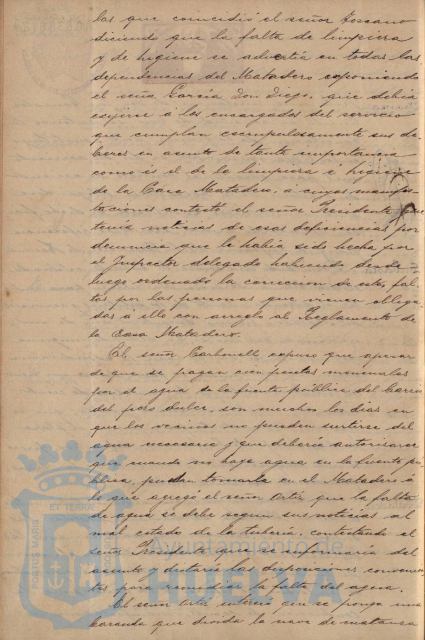 las que coincidió el señor Toscano
diciendo que la falta de limpieza
y de higiene se advertía en todas las
dependencias del Matadero exponiendo
el señor García Don Diego, que debía
exijirse á los encargados del servicio
que cumplan escrupulosamente sus de-
beres en asunto de tanta importancia
como és el de la limpieza é higiene
de la Casa Matadero, á cuyas manifes-
taciones contestó el señor Presidente que
tenía noticias de esas deficiencias por
denuncia que le había sido hecha por
el Inspector delegado habiendo desde
luego ordenado la corrección de estas fal-
tas por las personas que vienen obliga-
das á ello con arreglo al Reglamento de
la Casa Matadero.
El señor Carbonell expuso que apesar
de que se pagan cien pesetas mensuales
por el agua de la fuente pública del Barrio
del polvo dulce, son muchos los días en
que los vecinos no pueden surtirse del
agua necesaria y que debería autorizarse
que cuando no haya agua en la fuente pú-
blica, puedan tomarla en el Matadero á
lo que agregó el señor Ortiz que la falta
de agua se debe segun sus noticias al
mal estado de la tubería, contestando el
señor Presidente que se informaría del
asunto y dictaría las disposiciones convenien-
tes para remediar la falta del agua.
El señor Ortiz interesó que se ponga una
baranda que divida la nave de matanza
PORTUS MARIS ET TERRAE
Ayuntamiento de
HUELVA